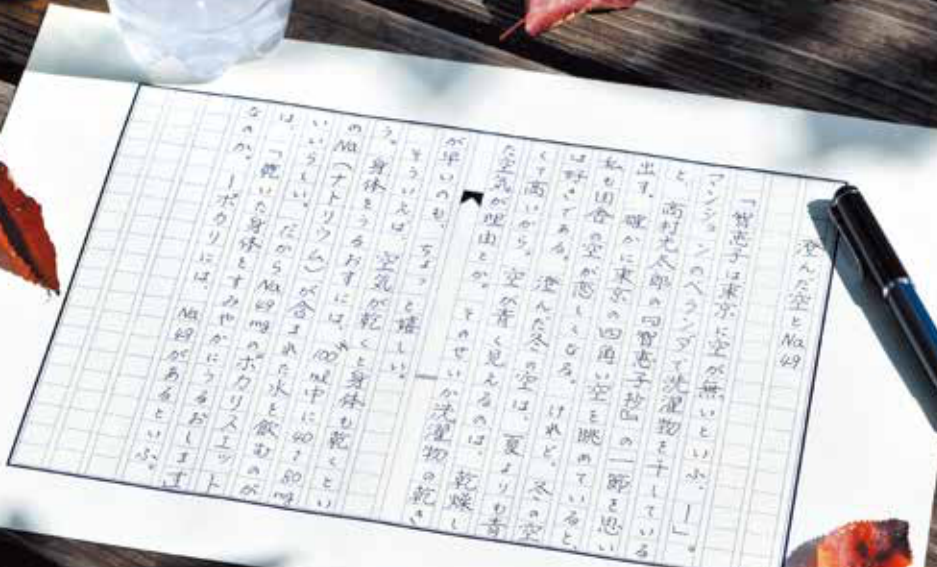 澄んだ空とNa49
「智恵子は東京に空が無いといふ、ー」。
マンションのベランダで洗濯物を干している
と、高村光太郎の『智恵子抄』の一節を思い
出す。確かに東京の四角い空を眺めていると、
私も田舎の空が恋しくなる。けれど、冬の空
は好きである。澄んだ冬の空は、夏よりも青
くて高いから。空が青く見えるのは、乾燥し
た空気が理由とか。そのせいか洗濯物の乾き
が早いのも、ちょっと嬉しい。
そういえば、空気が乾くと身体も乾くとい
う。身体をうるおすには、100ml中に40〜80mg
のNa(ナトリウム)が合まれた水を飲むのが
いいらしい。だからNa49mgのポカリスエット
は、「乾いた身体をすみやかにうるおします」
なのか。ーポカリには、Na49があるといふ。